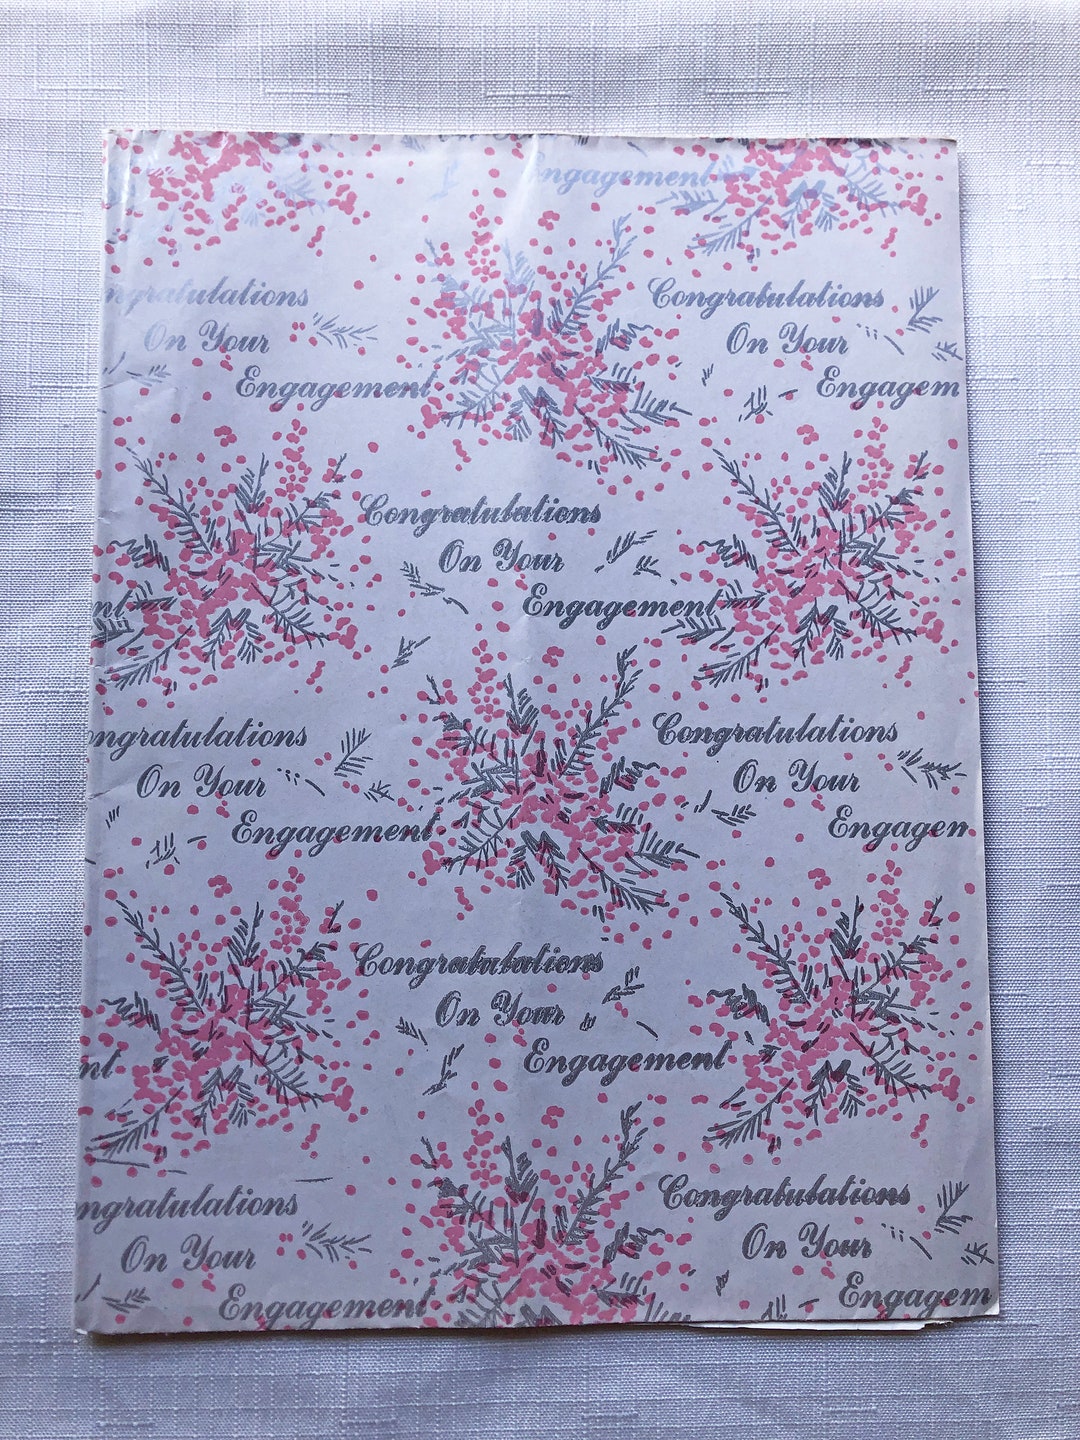 Engagement
ngratulations
On Your
Engagement
Congratulations
On Your
Engagem
Congratulations
On Your
Engagement
ent
ongratulations
On Your
Engagement
Congratulations
On Your
Engagem
Congratulations
On Your
Engagement
nt
ngratulations
On Your
Engagement
Congratulations
On Your
Engagem